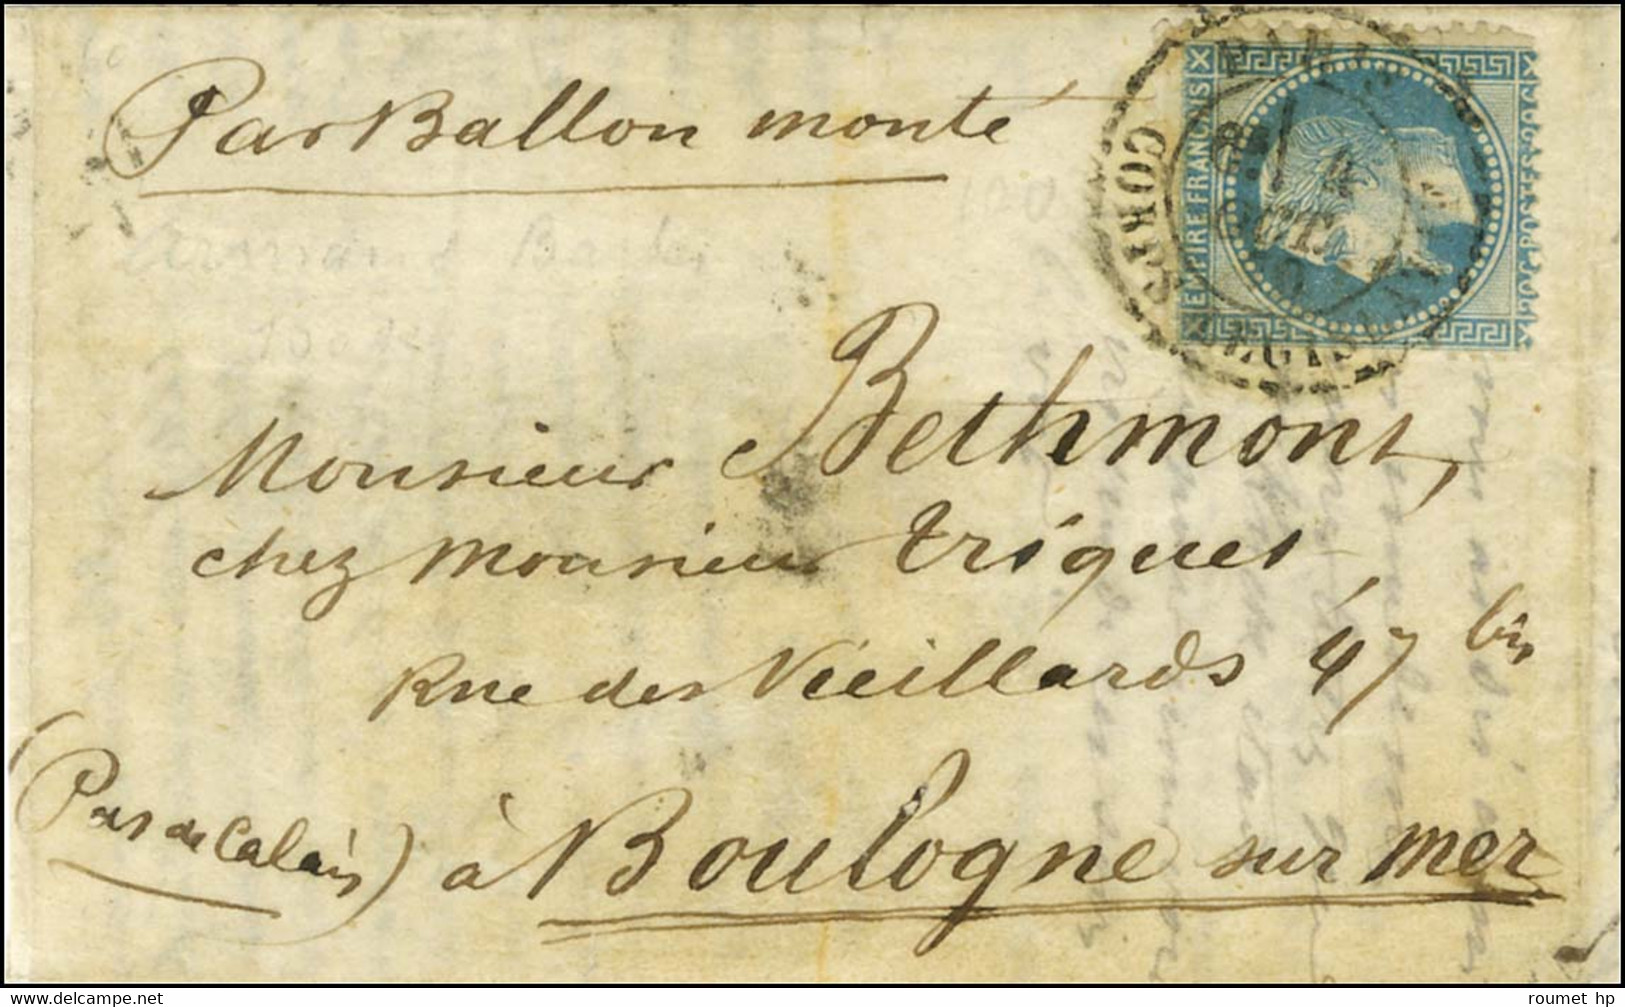 Par Ballon monté
PARIS
CORPS LEGISLATIF
4
OCT.
EMPIRE FRANCAIS
Monsieur Bethmont,
chez Monsieur triquet,
Rue des Vieillards 47 bis
(Pas de Calais) à Boulogne sur mer
www.delcampe.net
roumet_hp